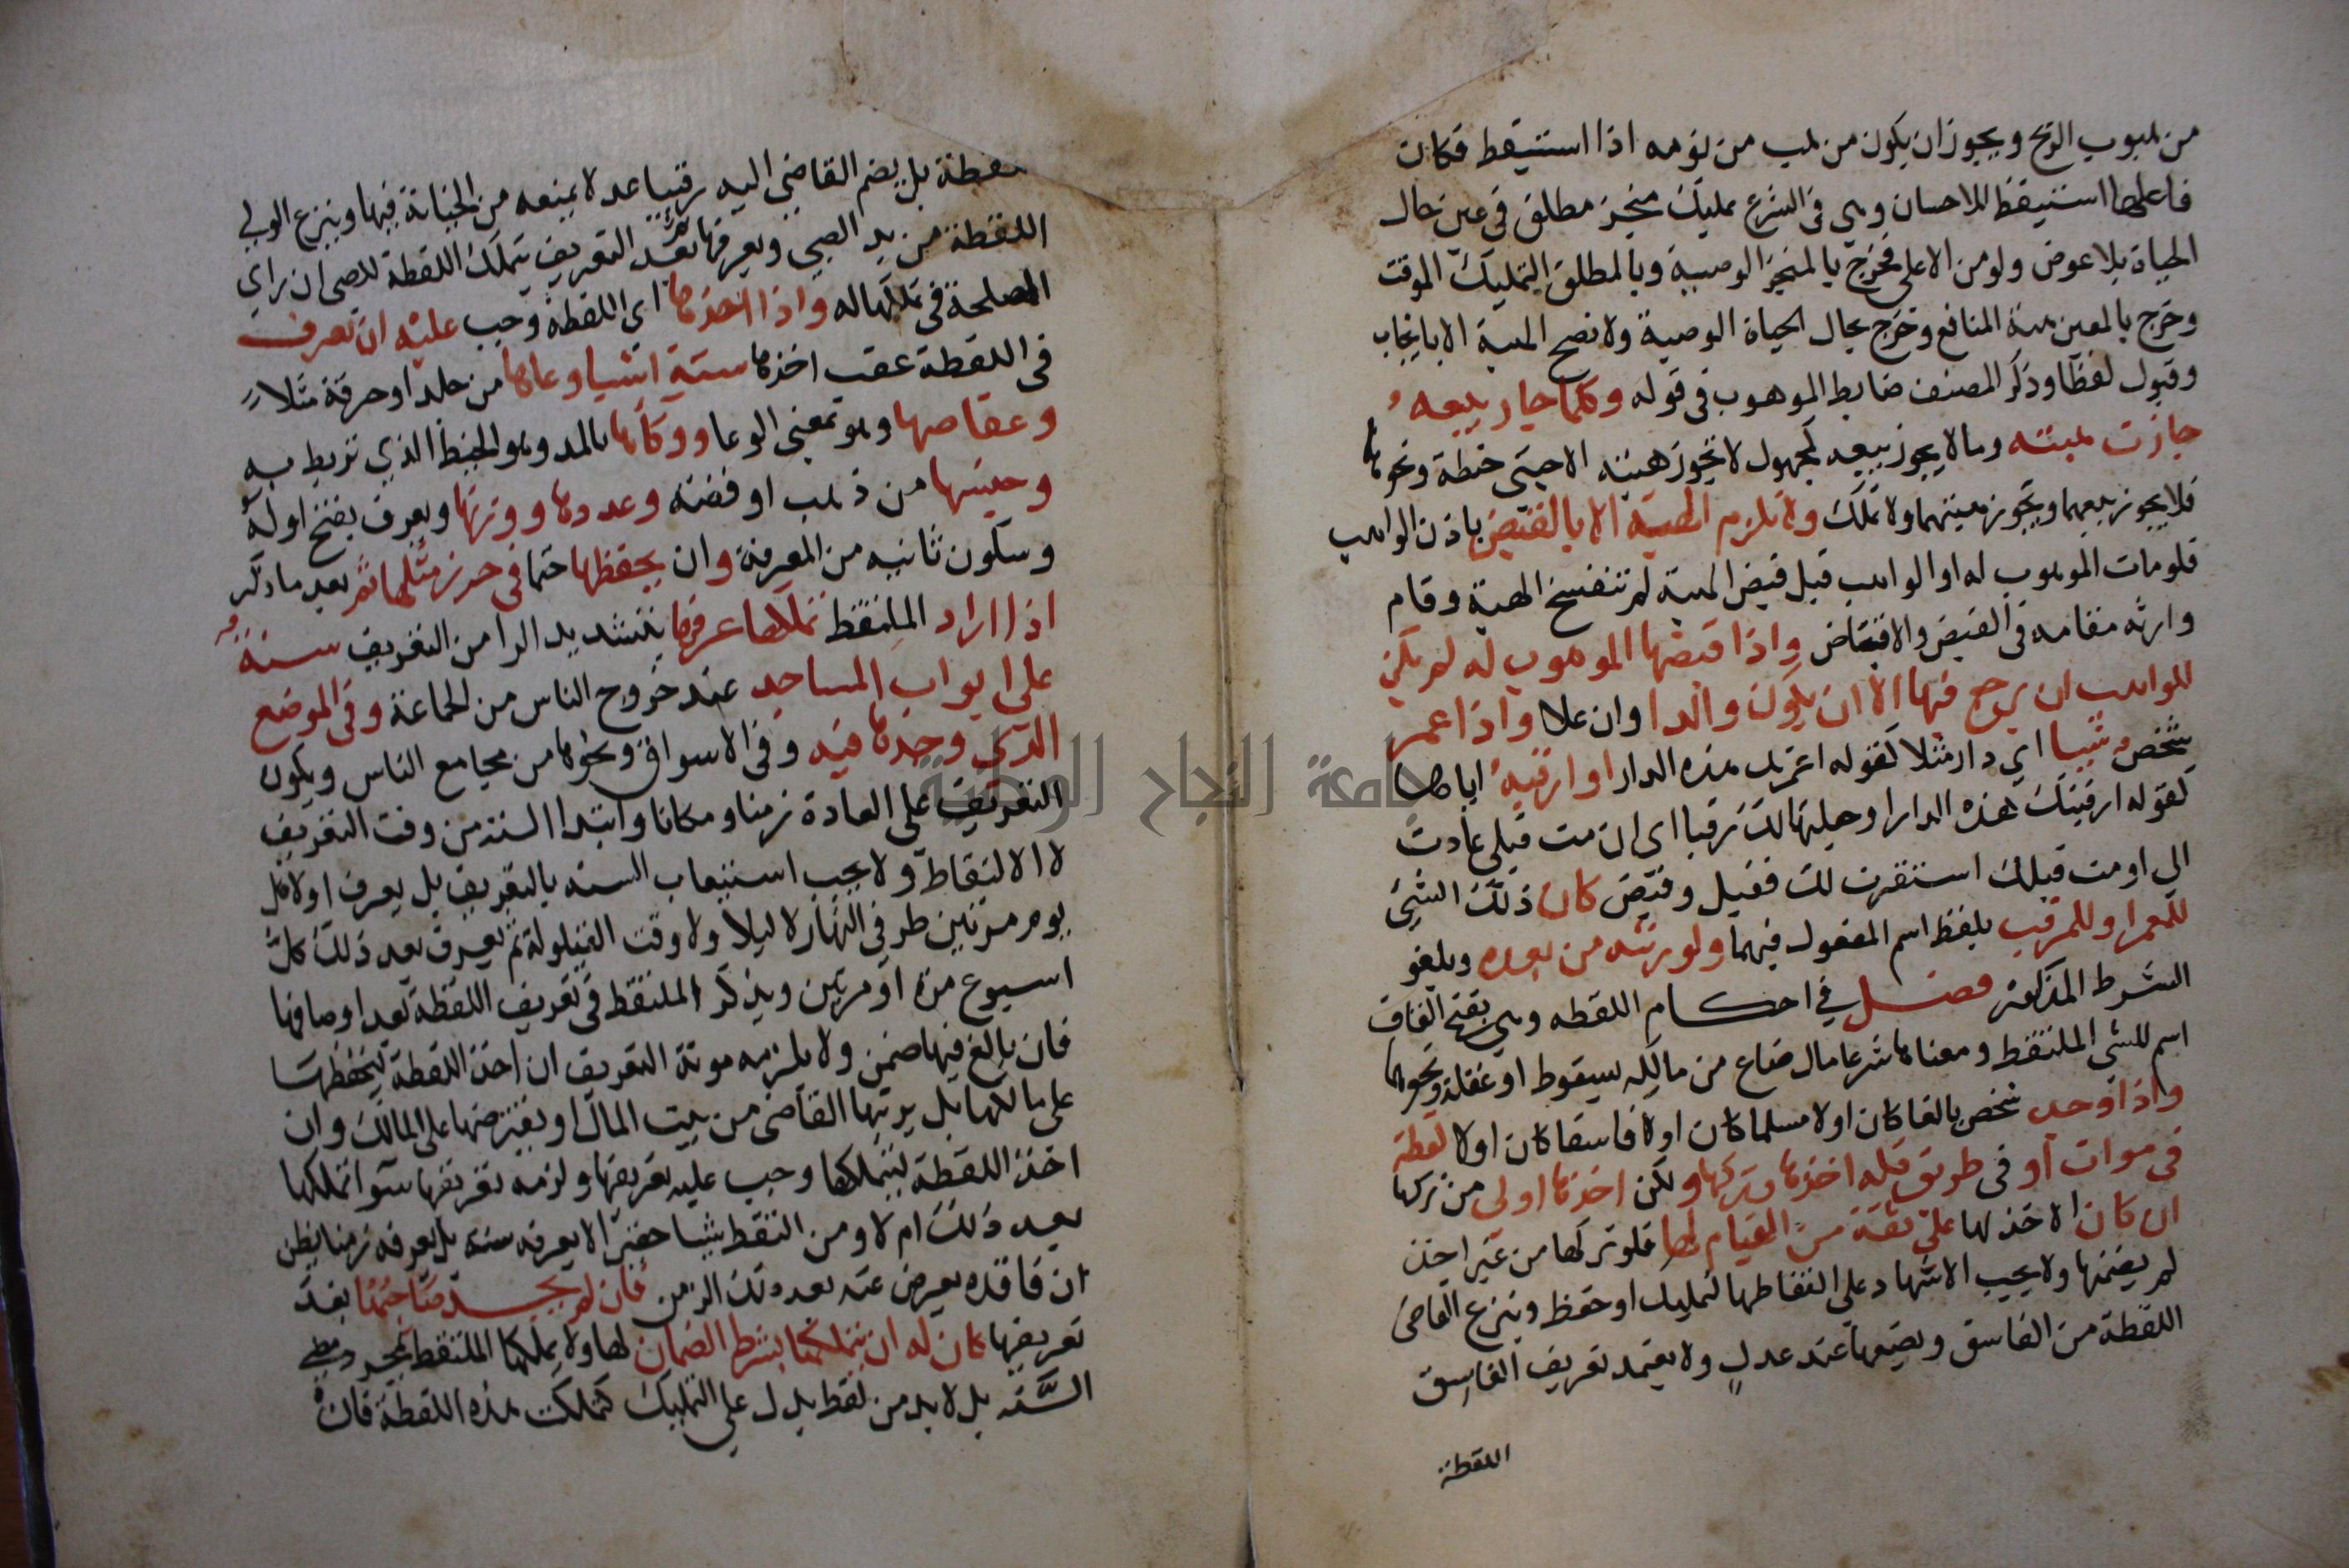 من هبوب الريح ويجوز ان يكون من هب من نومه اذا استيقظ فكان
فاعلها استيقظ للاحسان وهي في الشرع تمليك منجز مطلق في عين حال
الحياة بلا عوض ولو من الاعلى فخرج بالمنجز الوصية وبالمطلق التمليك الموقت
وخرج بالعين هبة المنافع وخرج بحال الحياة الوصية ولا تصح الهبة الا بايجاب
وقبول لفظا وذكر المصنف ضابط الموهوب في قوله وكلما جاز بيعه
جازت هبته وما لا يجوز بيعه كمجهول لا تجوز هبته الا حبتي حنطة ونحوها
فلا يجوز بيعهما وتجوز هبتهما ولا تملك ولا تلزم الهبة الا بالقبض باذن الواهب
فلو مات الموهوب له او الواهب قبل قبض الهبة لم تنفسخ الهبة وقام
وارثه مقامه في القبض والاقباض واذا قبضها الموهوب له لم يكن
للواهب ان يرجع فيها الا ان يكون والدا وان علا واذا عمر
شخص شيا اي دار مثلا كقوله اعمرتك هذه الدار او ارقبه اياها
كقوله ارقبتك هذه الدار او جعلتها لك رقبا اي ان مت قبلي عادت
الي او مت قبلك استقرت لك فقبل وقبض كان ذلك الشي
للمعمر او للمرقب بلفظ اسم المفعول فيهما ولورثته من بعده ويلغو
الشرط المذكور فصل في احكام اللقطه وهي بفتح القاف
اسم للشي الملتقط ومعناها شرعا مال ضاع من مالكه بسقوط او غفلة ونحوها
واذا وجد شخص بالغا كان اولا مسلما كان اولا فاسقا كان اولا لقطة
في موات او في طريق فله اخذها وتركها ولكن اخذها اولى من تركها
ان كان الاخذ لها على ثقة من القيام بها فلو تركها من غير اخذ
لم يضمنها ولا يجب الاشهاد على التقاطها لتمليك او حفظ وينزع القاضي
اللقطة من الفاسق ويضعها عند عدل ولا يعتمد تعريف الفاسق
اللقطة
بل يضم القاضي اليه رقيبا عدلا يمنعه من الخيانة فيها وينزع الولي
اللقطة من يد الصبي ويعرفها ثم بعد التعريف يتملك اللقطة للصبي ان راى
المصلحة في تملكها له واذا اخذها اي اللقطة وجب عليه ان يعرف
في اللقطة عقب اخذها ستة اشيا وعاها من جلد او خرقة مثلا
وعفاصها وهو بمعنى الوعا ووكاها بالمد وهو الخيط الذي تربط به
وجنسها من ذهب او فضة وعددها ووزنها ويعرف بفتح اوله
وسكون ثانيه من المعرفة وان يحفظها حتما في حرز مثلها ثم بعد ما ذكر
اذا اراد الملتقط تملكها عرفها بتشديد الرا من التعريف سنة
على ابواب المساجد عند خروج الناس من الجماعة وفي الموضع
الذي وجدها فيه وفي الاسواق ونحوها من مجامع الناس ويكون
التعريف على العادة زمنا ومكانا وابتدا السنة من وقت التعريف
لا الالتقاط ولا يجب استيعاب السنه بالتعريف بل يعرف اولا كل
يوم مرتين طرفي النهار لا ليلا ولا وقت القيلولة ثم يعرف بعد ذلك كل
اسبوع مرة او مرتين ويذكر الملتقط في تعريف اللقطة بعد اوصافها
فان بالغ فيها ضمن ولا يلزمه مونة التعريف ان اخذ اللقطة ليحفظها
على مالكها بل يرتبها القاضي من بيت المال او يقترضها على المالك وان
اخذ اللقطة ليتملكها وجب عليه تعريفها ولزمه تعريفها سوا تملكها
بعد ذلك ام لا ومن التقط شيا حقيرا لا يعرفه سنة بل يعرفه زمنا يظن
ان فاقده يعرض عنه بعد ذلك الزمن فان لم يجد صاحبها بعد
تعريفها كان له ان يتملكها بشرط الضمان لها ولا يملكها الملتقط بمجرد مضي
السنة بل لا بد من لفظ يدل على التمليك كتملكت هذه اللقطة فان
جامعة النجاح الوطنية